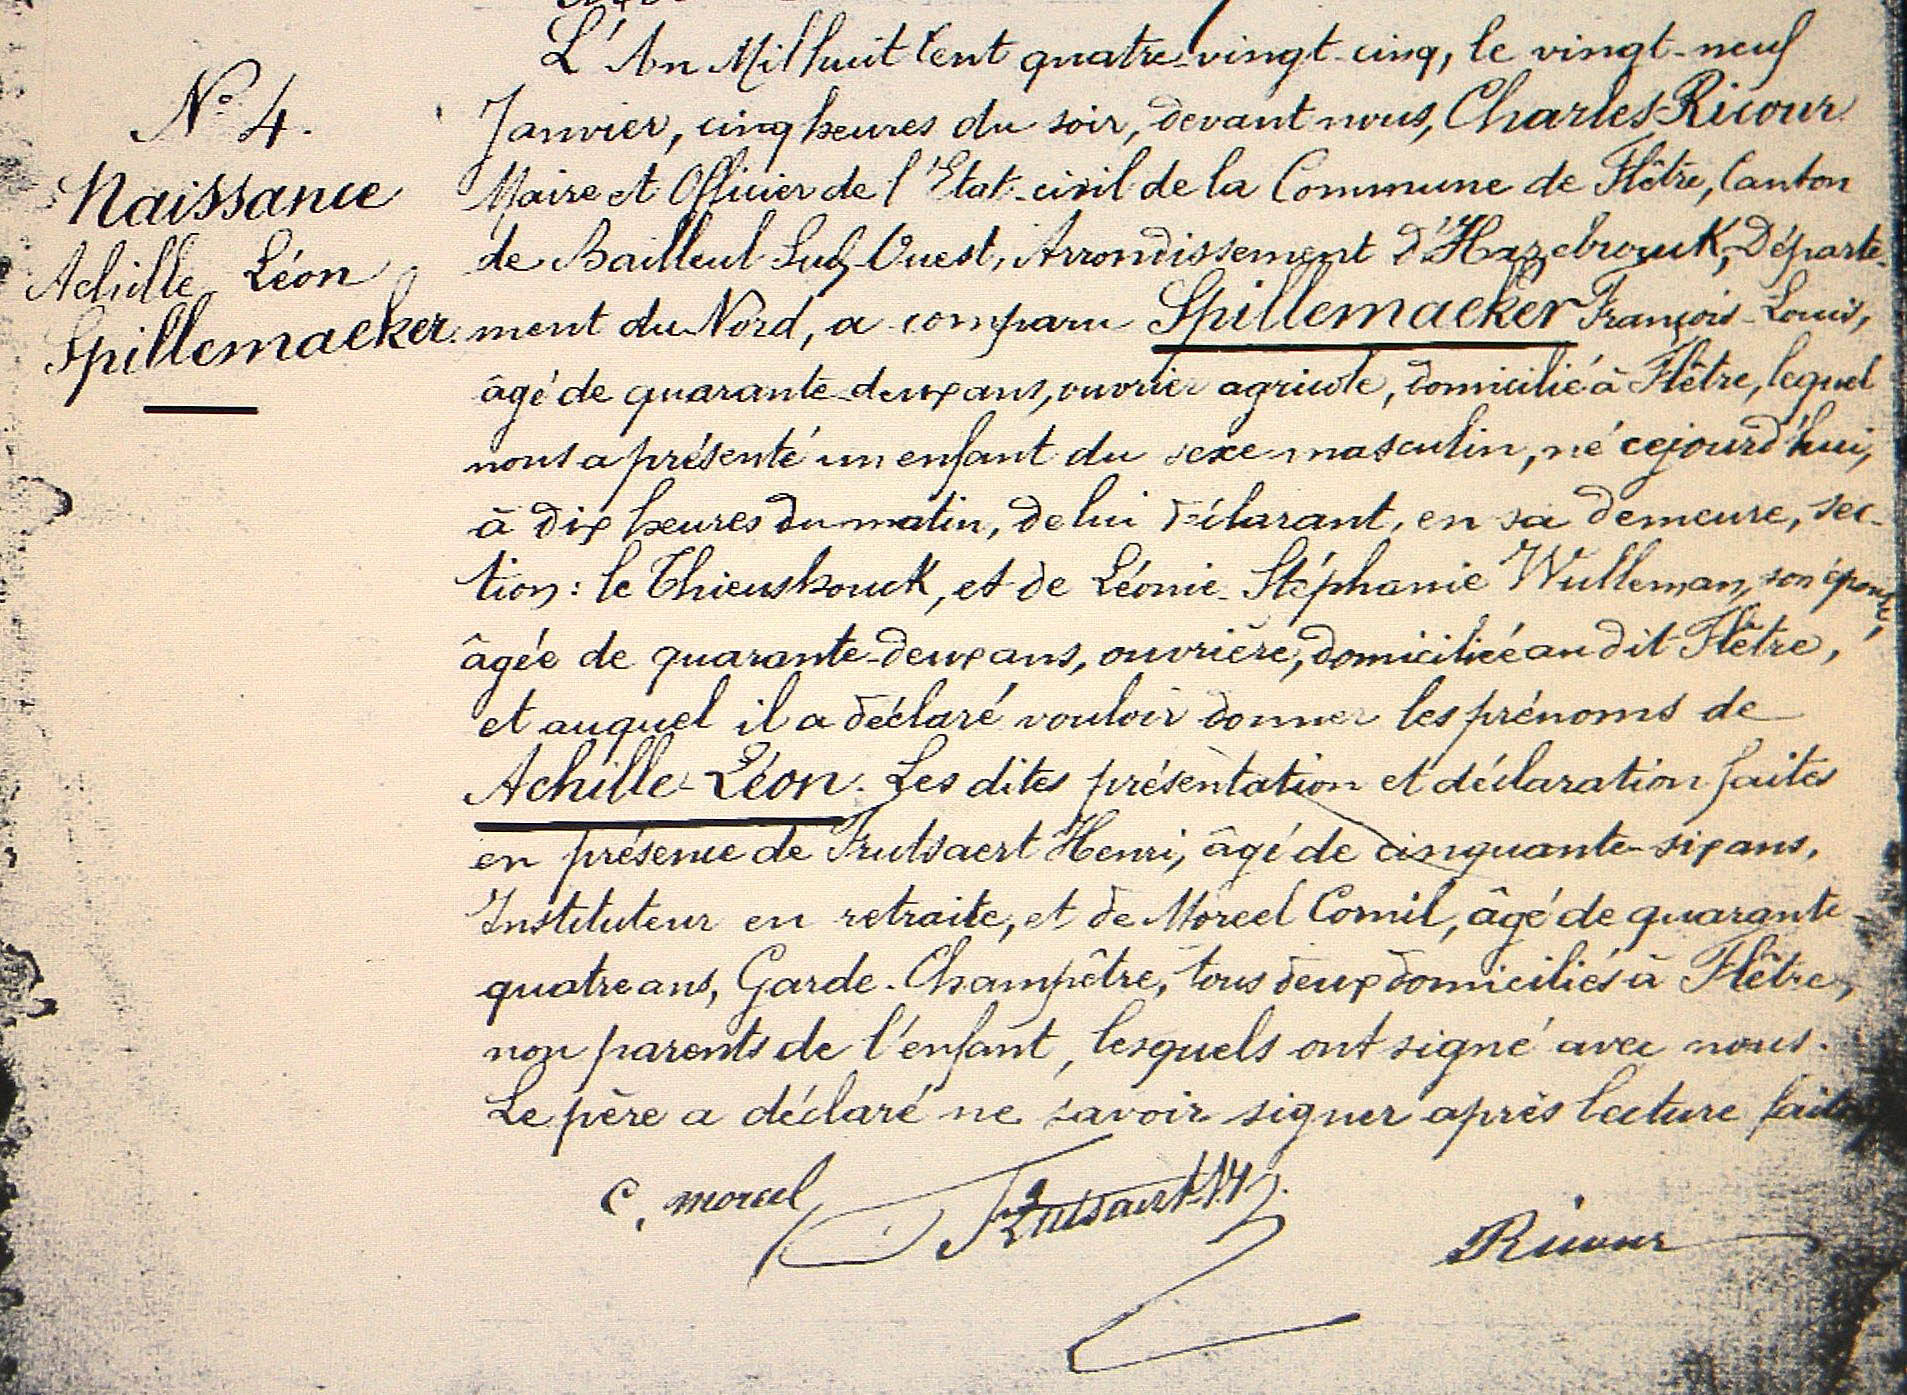 N° 4.
Naissance
Achille Léon
Spillemaeker.
L'An Mil huit Cent quatre-vingt-cinq, le vingt-neuf
Janvier, cinq heures du soir, devant nous, Charles Ricour
Maire et Officier de l'Etat-civil de la Commune de Flêtre, Canton
de Bailleul Sud-Ouest, Arrondissement d'Hazebrouck, Départe-
ment du Nord, a comparu Spillemaeker François-Louis,
âgé de quarante-deux ans, ouvrier agricole, domicilié à Flêtre, lequel
nous a présenté un enfant du sexe masculin, né cejourd'hui,
à dix heures du matin, de lui déclarant, en sa demeure, sec-
tion: le Thieushouck, et de Léonie-Stéphanie Wulleman, son épouse,
âgée de quarante-deux ans, ouvrière, domiciliée au dit Flêtre,
et auquel il a déclaré vouloir donner les prénoms de
Achille-Léon. Les dites présentation et déclaration faites
en présence de Frutsaert Henri, âgé de cinquante-six ans,
Instituteur en retraite, et de Moreel Cornil, âgé de quarante-
quatre ans, Garde-Champêtre, tous deux domiciliés à Flêtre,
non parents de l'enfant, lesquels ont signé avec nous.
Le père a déclaré ne savoir signer après lecture faite
C. moreel Frutsaert H. Ricour